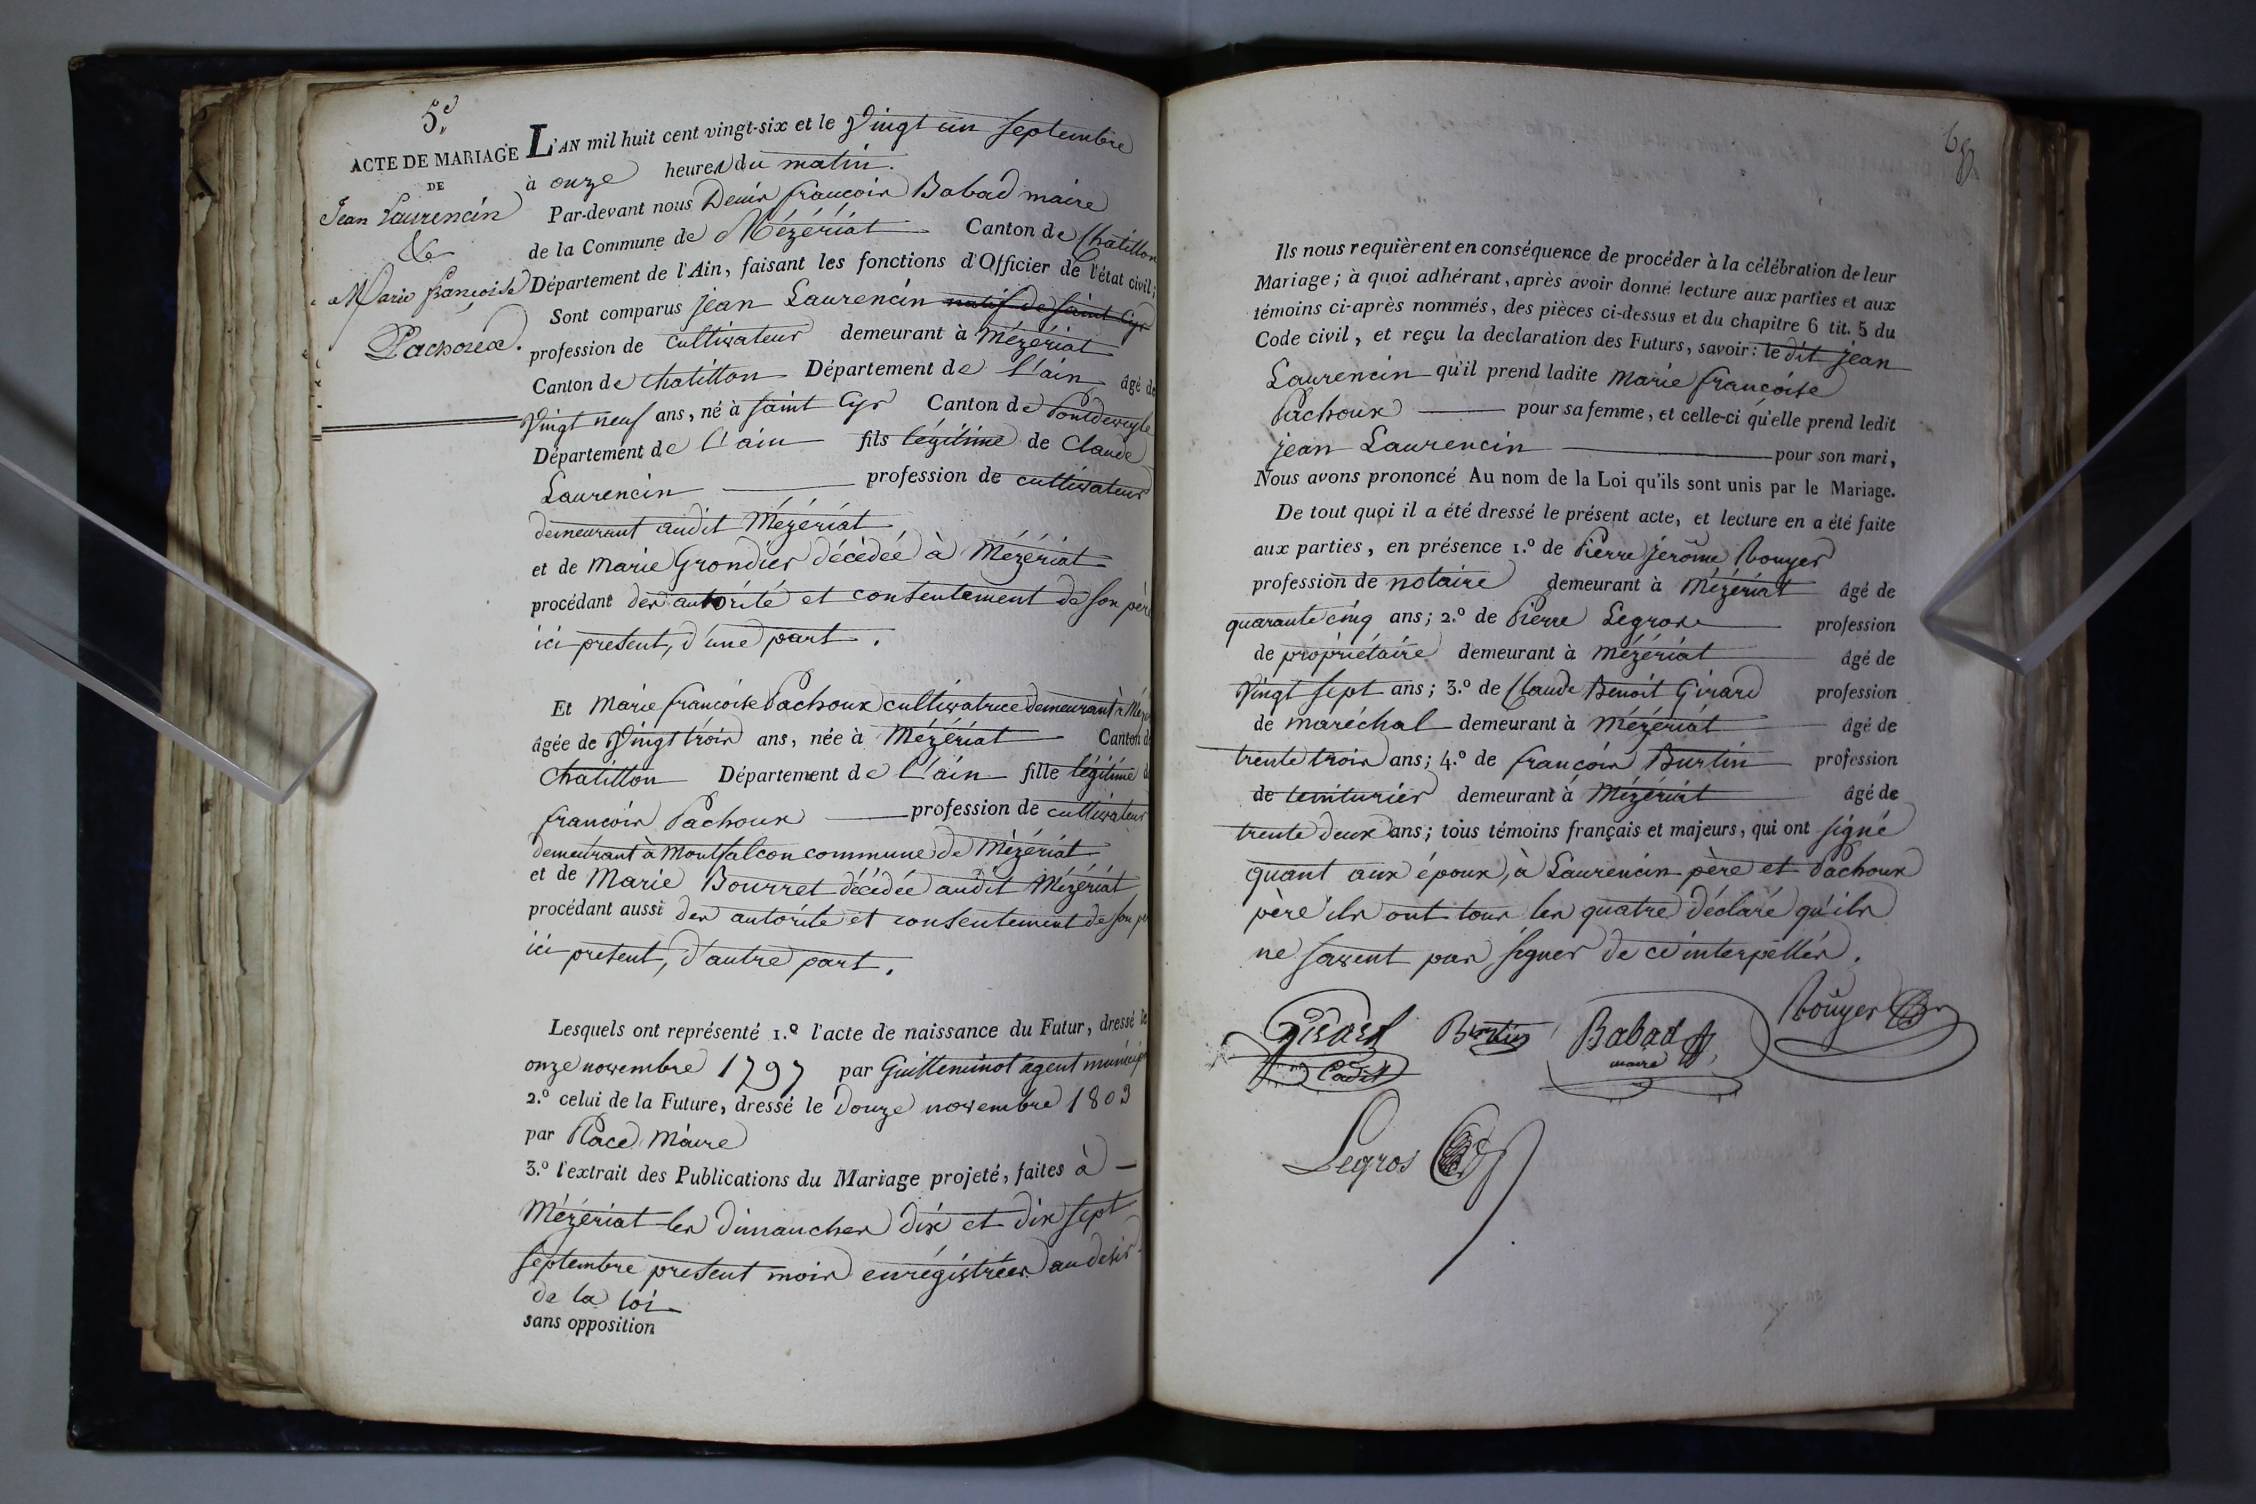 5e
ACTE DE MARIAGE
DE
Jean Laurencin
&
Marie françoise
Pachoux.
L'AN mil huit cent vingt-six et le Vingt un septembre
à onze heures du matin.
Par-devant nous Denis françois Babad maire
de la Commune de Mézériat Canton de Chatillon
Département de l'Ain, faisant les fonctions d'Officier de l'état civil;
Sont comparus jean Laurencin natif de saint Cyr
profession de cultivateur demeurant à Mézériat
Canton de chatillon Département de l'ain âgé de
Vingt neuf ans, né à saint Cyr Canton de Pontdeveyle
Département de l'ain fils légitime de Claude
Laurencin profession de cultivateur
demeurant audit Mézériat
et de Marie Grondier décédée à Mézériat
procédant des autorité et consentement de son père
ici present, d'une part.
Et Marie françoise Pachoux cultivatrice demeurant à
âgée de Vingt trois ans, née à Mézériat Canton de
chatillon Département de l'ain fille légitime de
françois Pachoux profession de cultivateur
demeurant à Montfalcon commune de Mézériat
et de Marie Bourret décédée audit Mézériat
procédant aussi des autorité et consentement de son
ici present, d'autre part.
Lesquels ont représenté 1.o l'acte de naissance du Futur, dressé le
onze novembre 1797 par Guilleminot agent
2.o celui de la Future, dressé le douze novembre 1803
par Place Maire
3.o l'extrait des Publications du Mariage projeté, faites à —
Mézériat les dimanches dix et dix sept
septembre present mois enrégistrées au desir
de la loi
sans opposition
Ils nous requièrent en conséquence de procéder à la célébration de leur
Mariage; à quoi adhérant, après avoir donné lecture aux parties et aux
témoins ci-après nommés, des pièces ci-dessus et du chapitre 6 tit. 5 du
Code civil, et reçu la declaration des Futurs, savoir: le dit jean
Laurencin qu'il prend ladite Marie françoise
Pachoux pour sa femme, et celle-ci qu'elle prend ledit
jean Laurencin pour son mari,
Nous avons prononcé Au nom de la Loi qu'ils sont unis par le Mariage.
De tout quoi il a été dressé le présent acte, et lecture en a été faite
aux parties, en présence 1.o de Pierre jerôme Rouyer
profession de notaire demeurant à Mézériat âgé de
quarante cinq ans; 2.o de Pierre Legros profession
de propriétaire demeurant à Mézériat âgé de
Vingt sept ans; 3.o de Claude Benoit Girard profession
de maréchal demeurant à Mézériat âgé de
trente trois ans; 4.o de françois Burtin profession
de teinturier demeurant à Mézériat âgé de
trente deux ans; tous témoins français et majeurs, qui ont signé
quant aux époux, à Laurencin père et Pachoux
père ils ont tous les quatre déclaré qu'ils
ne savent pas signer de ce interpellés.
Girard Burtin Babad Rouyer
Cadet maire
Legros